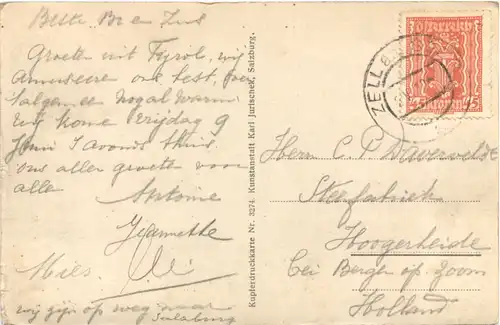 Beste Br en Zus
Groeten uit Tyrol, wij
Amuseere ons best,
nogal warm
Wij kome Vrijdag 9
Juni S avonds thuis
ons aller groeten voor
alle
Antoine
Jeannette
Mies.
wij zijn op weg naar
Salzburg
Kupferdruckkarte Nr. 3274. Kunstanstalt Karl Jurischek, Salzburg.
Österreich
45 Kronen 45
ZELL
Herrn C. P. Daverveldt
Steefabriek
Hoogerheide
bei Bergen op Zoom
Holland